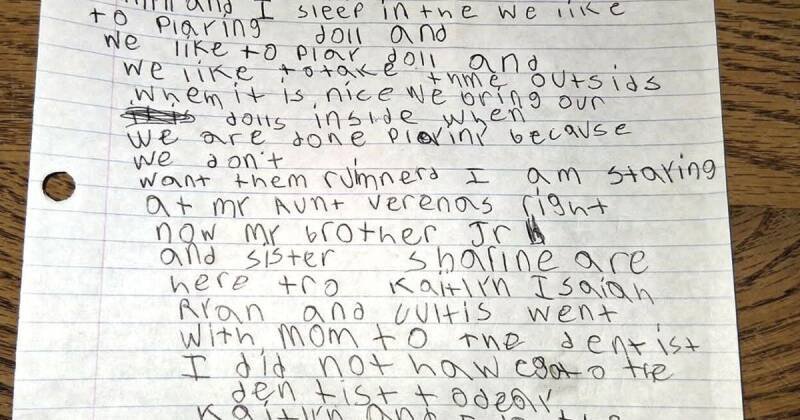 and I sleep in the we like
to Plaring doll and
we like to Plar doll and
we like totake thme outsids
whem it is nice we bring our
dolls inside when
we are done Plarinr because
we don't
want them rumnerd I am staring
at mr Aunt verenas right
now mr brother Jr
and sister sharine are
here tro Kaitirn Isaiah
Rran and cvitis went
with mom to the dentist
I did not haw egoto the
dentist todear
Kaitirn and